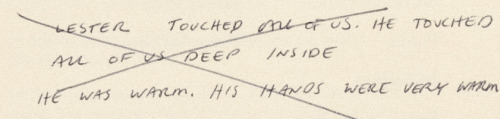 LESTER TOUCHED ALL OF US. HE TOUCHED
ALL OF US DEEP INSIDE
HE WAS WARM. HIS HANDS WERE VERY WARM